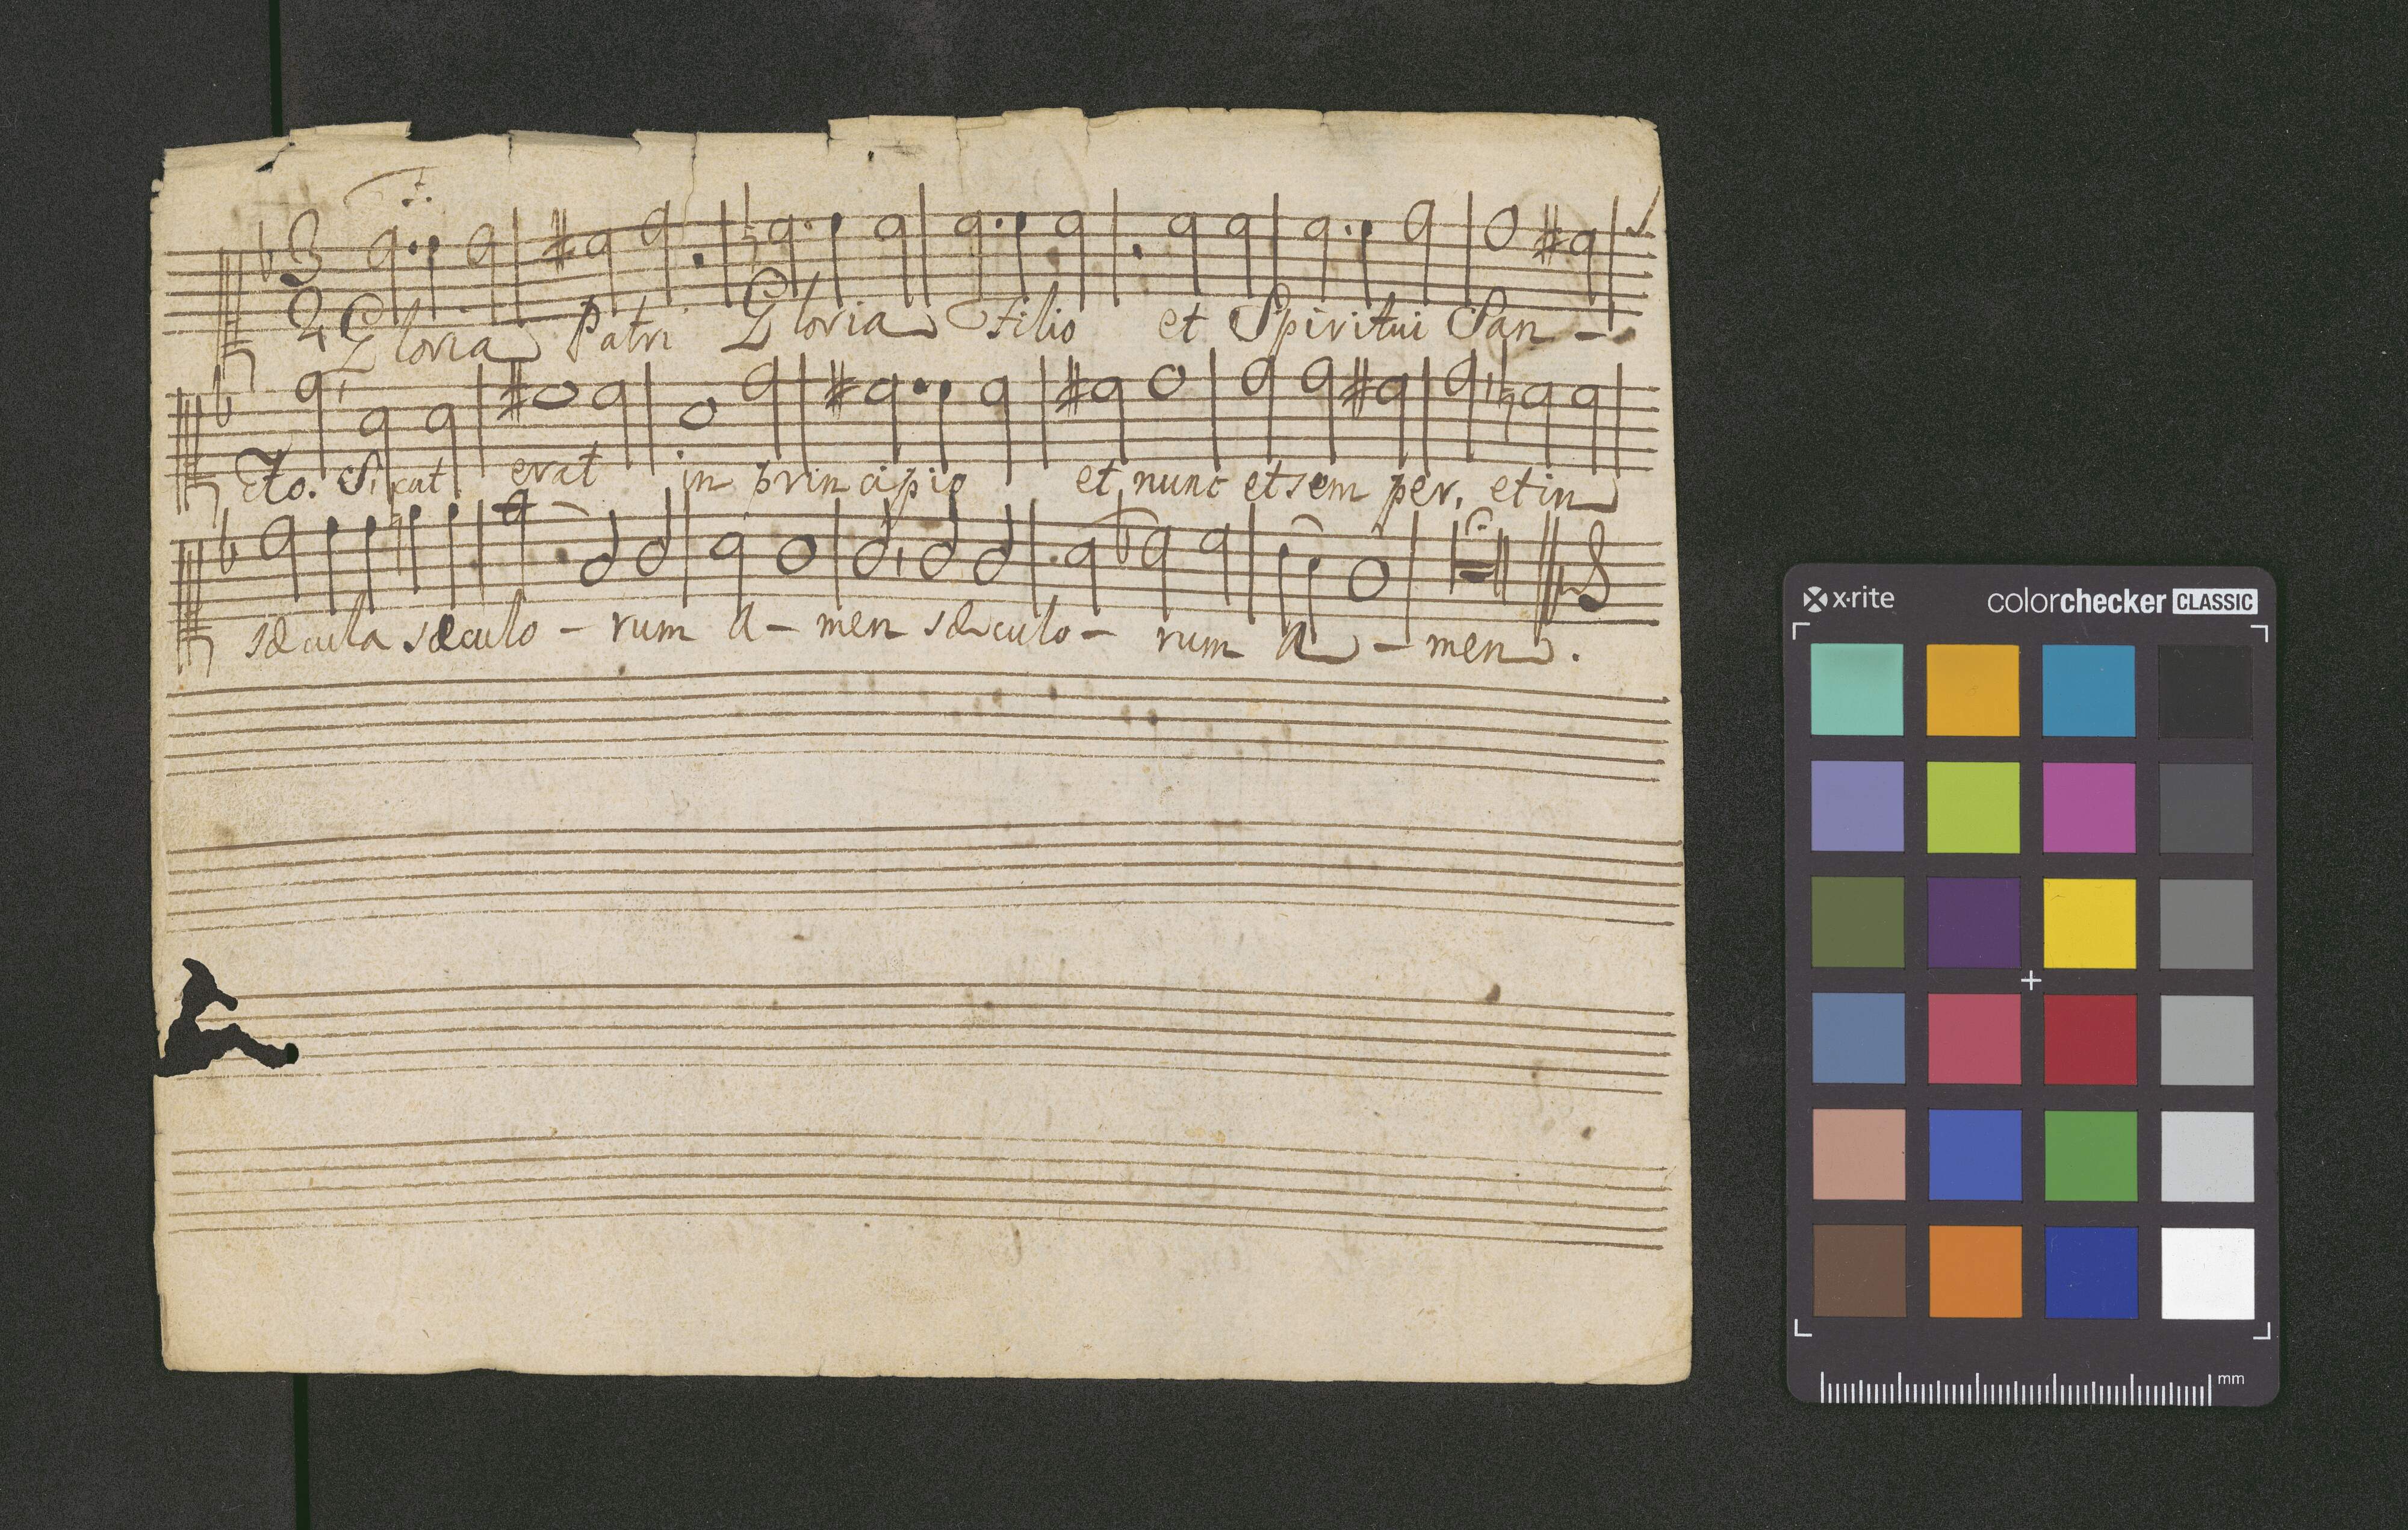 3
2
Gloria Patri Gloria Filio et Spiritui San -
cto. Sicut erat in principio et nunc et sem per, et in
sæcula sæculo - rum a - men sæculo - rum a - men.
x-rite
colorchecker CLASSIC
mm